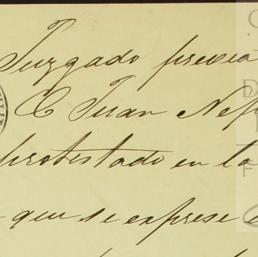 Juzgado previa
C Juan Nep
protestado en to
que se exprese